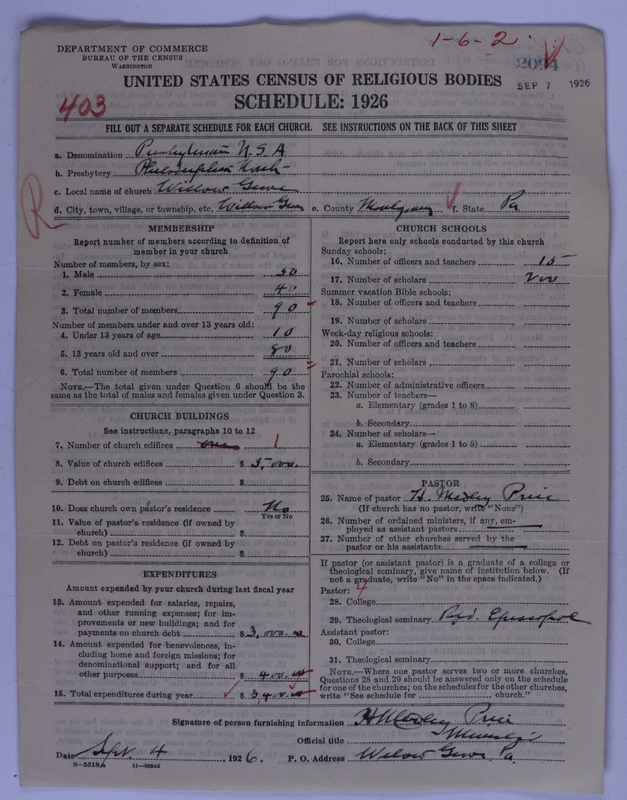 1-6-2
DEPARTMENT OF COMMERCE
BUREAU OF THE CENSUS
WASHINGTON
2094
SEP 7 1926
UNITED STATES CENSUS OF RELIGIOUS BODIES
SCHEDULE: 1926
403
FILL OUT A SEPARATE SCHEDULE FOR EACH CHURCH. SEE INSTRUCTIONS ON THE BACK OF THIS SHEET
a. Denomination Presbyterian U.S.A
b. Presbytery Philadelphia North
c. Local name of church Willow Grove
d. City, town, village, or township, etc. Willow Grove e. County Montgomery f. State Pa
R
MEMBERSHIP
Report number of members according to definition of
member in your church
Number of members, by sex:
1. Male 50
2. Female 40
3. Total number of members 90
Number of members under and over 13 years old:
4. Under 13 years of age 10
5. 13 years old and over 80
6. Total number of members 90
NOTE.—The total given under Question 6 should be the
same as the total of males and females given under Question 3.
CHURCH BUILDINGS
See instructions, paragraphs 10 to 12
7. Number of church edifices one 1
8. Value of church edifices $ 5,000.
9. Debt on church edifices $
10. Does church own pastor's residence No
Yes or No
11. Value of pastor's residence (if owned by
church) $
12. Debt on pastor's residence (if owned by
church) $
EXPENDITURES
Amount expended by your church during last fiscal year
13. Amount expended for salaries, repairs,
and other running expenses; for im-
provements or new buildings; and for
payments on church debt $ 3,000.00
14. Amount expended for benevolences, in-
cluding home and foreign missions; for
denominational support; and for all
other purposes $ 400.00
15. Total expenditures during year $ 3,400.00
CHURCH SCHOOLS
Report here only schools conducted by this church
Sunday schools:
16. Number of officers and teachers 15
17. Number of scholars 200
Summer vacation Bible schools:
18. Number of officers and teachers
19. Number of scholars
Week-day religious schools:
20. Number of officers and teachers
21. Number of scholars
Parochial schools:
22. Number of administrative officers
23. Number of teachers—
a. Elementary (grades 1 to 8)
b. Secondary
24. Number of scholars—
a. Elementary (grades 1 to 8)
b. Secondary
PASTOR
25. Name of pastor H. Medley Price
(If church has no pastor, write "None")
26. Number of ordained ministers, if any, em-
ployed as assistant pastors
27. Number of other churches served by the
pastor or his assistants
If pastor (or assistant pastor) is a graduate of a college or
theological seminary, give name of institution below. (If
not a graduate, write "No" in the space indicated.)
Pastor: 4
28. College
29. Theological seminary Refd. Episcopal
Assistant pastor:
30. College
31. Theological seminary
NOTE.—Where one pastor serves two or more churches,
Questions 28 and 29 should be answered only on the schedule
for one of the churches; on the schedules for the other churches,
write "See schedule for church."
Signature of person furnishing information H Medley Price
Official title Minister
Date Sept. 4, 1926. P. O. Address Willow Grove Pa.
8-5518A 11-9054S